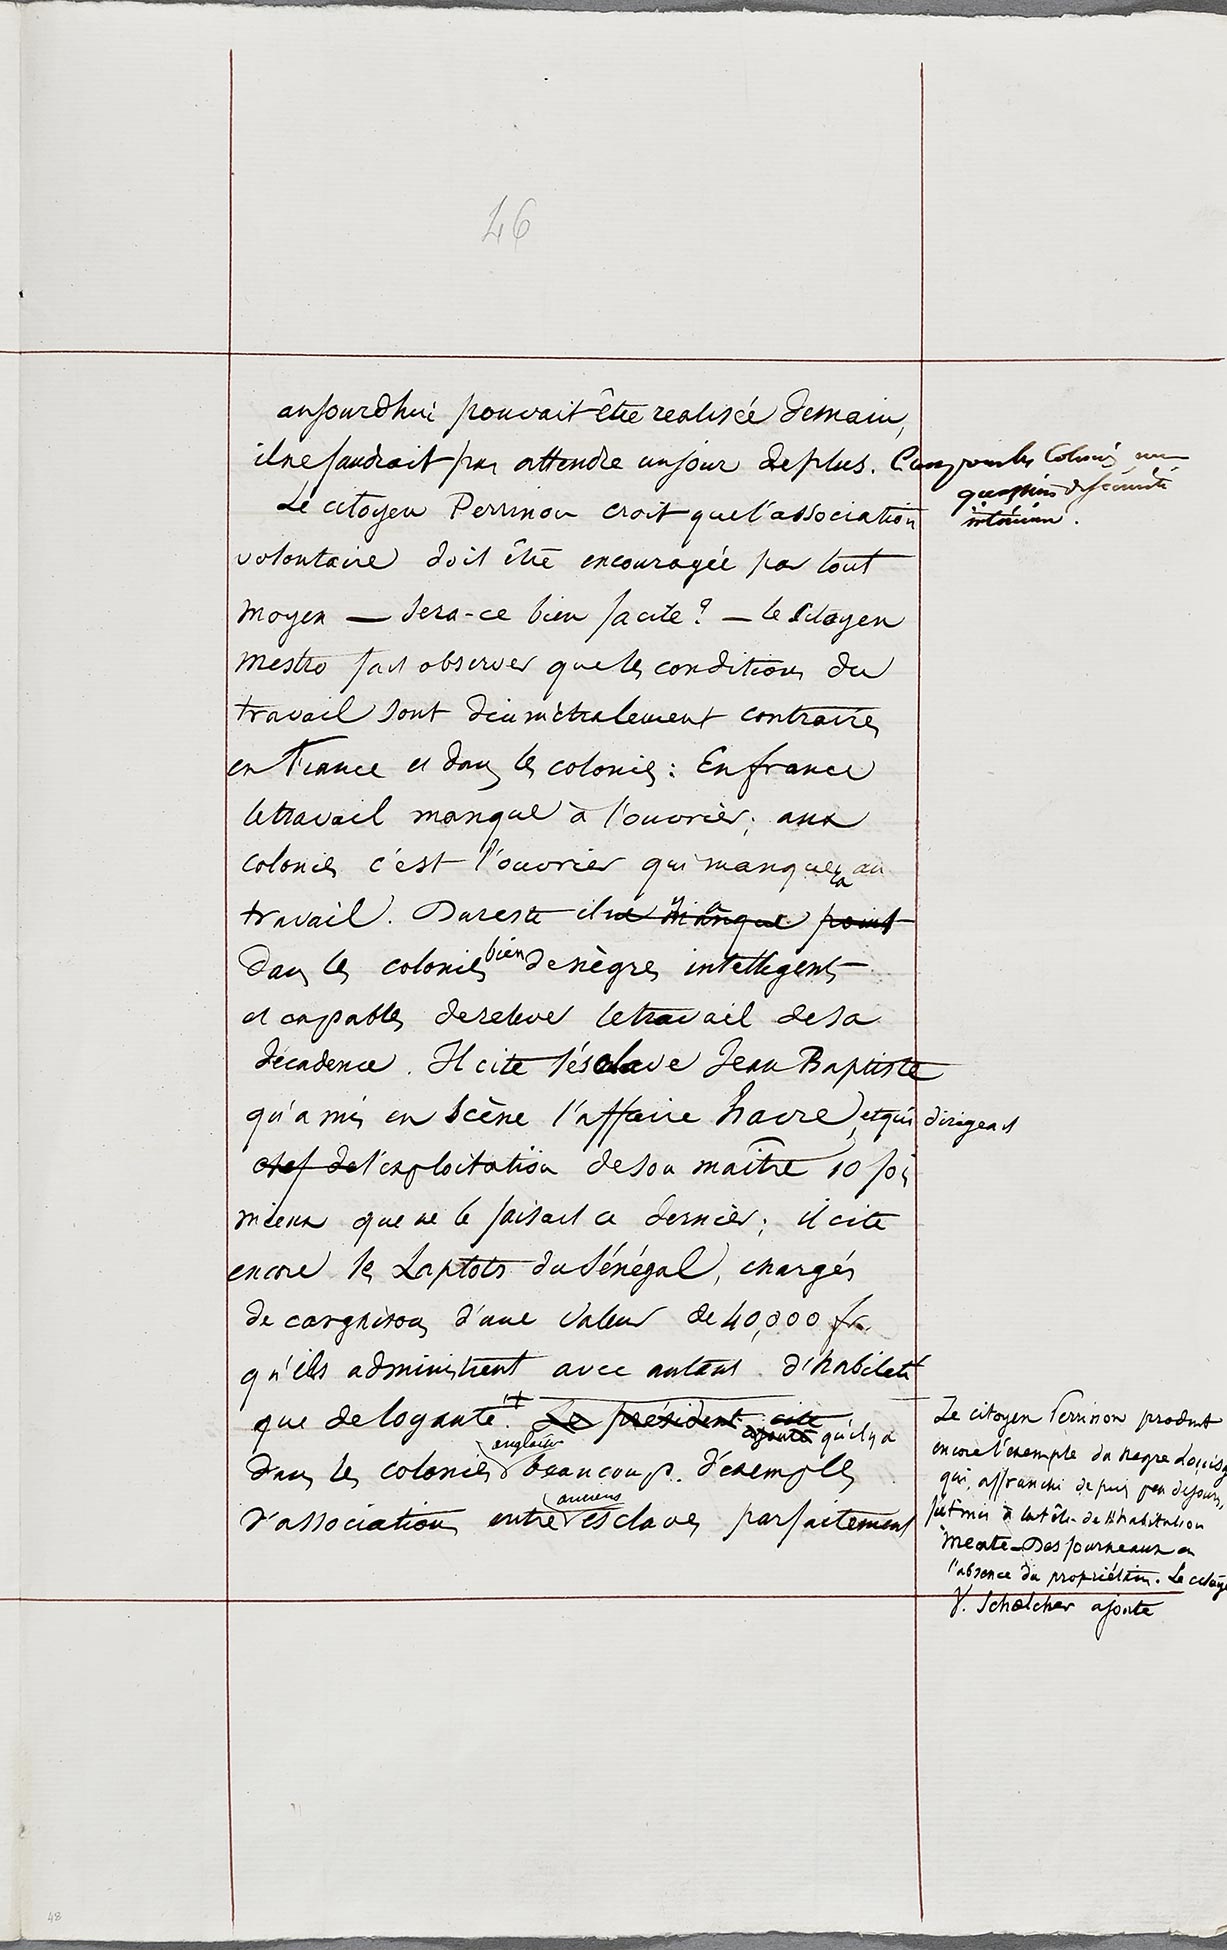 46
aujourdhui pouvait être realisée demain,
il ne faudrait pas attendre un jour de plus. C'est pour les Colonies une
question de sécurité
intérieure.
Le citoyen Perrinon croit que l'association
volontaire doit être encouragée par tout
moyen — sera-ce bien facile? — le Citoyen
mestro fait observer que les conditions du
travail sont diamétralement contraires
en France et dans les colonies : En france
le travail manque à l'ouvrier; aux
colonies c'est l'ouvrier qui manque au
travail. Du reste il ne manque point
il y a
dans les colonies bien de nègres intelligents
et capables de relever le travail de sa
décadence. Il cite l'ésclave Jean Baptiste
qu'a mis en scène l'affaire havre, et qui dirigeait
chef de l'exploitation de son maître 10 fois
mieux que ne le faisait ce dernier; il cite
encore les Laptots du Sénégal, chargés
de cargaisons d'une valeur de 40,000 fr.
qu'ils administrent avec autant d'habileté
que de loyauté. + Le président cite
ajoute qu'il y a
dans les colonies anglaises beaucoup d'exemples
d'associations entre anciens esclaves parfaitement
Le citoyen Perrinon produit
encore l'exemple du negre
qui, affranchi depuis peu de jours,
fut mis à la tête de l'habitation
meate-Des fourneaux en
l'absence du propriétaire. Le citoyen
V. Schœlcher ajoute
48